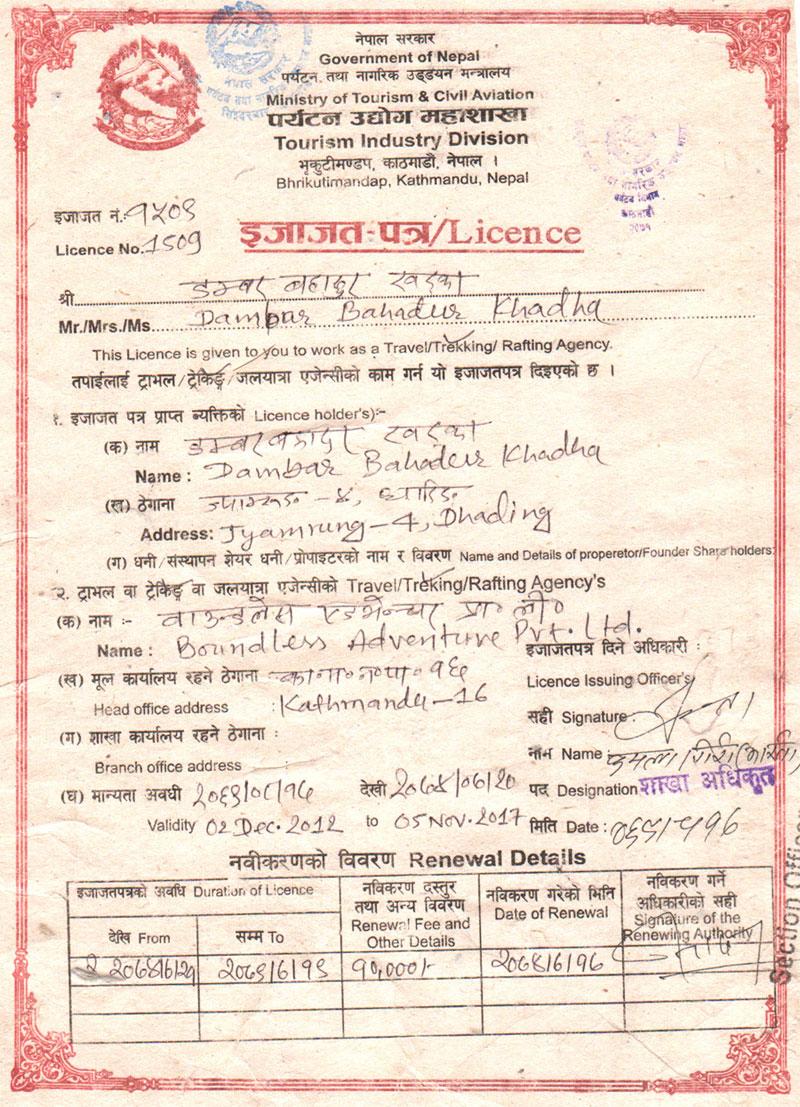 नेपाल सरकार
Government of Nepal
पर्यटन तथा नागरिक उड्डयन मन्त्रालय
Ministry of Tourism & Civil Aviation
पर्यटन उद्योग महाशाखा
Tourism Industry Division
भृकुटीमण्डप, काठमाडौं, नेपाल ।
Bhrikutimandap, Kathmandu, Nepal
इजाजत नं.: १५०९
Licence No. 1509
इजाजत-पत्र/Licence
श्री डम्बर बहादुर खड्का
Mr./Mrs./Ms. Dambar Bahadur Khadha
This Licence is given to you to work as a Travel/Trekking/ Rafting Agency.
तपाईलाई ट्राभल/ट्रेकिङ्ग/जलयात्रा एजेन्सीको काम गर्न यो इजाजतपत्र दिइएको छ ।
१. इजाजत पत्र प्राप्त ब्यक्तिको Licence holder's):-
(क) नाम डम्बर बहादुर खड्का
Name : Dambar Bahadur Khadha
(ख) ठेगाना ज्यामरुङ -४, धादिङ
Address: Jyamrung-4, Dhading
(ग) धनी/संस्थापन शेयर धनी/प्रोपाइटरको नाम र विवरण Name and Details of properetor/Founder Share holders:
२. ट्राभल वा ट्रेकिङ्ग वा जलयात्रा एजेन्सीको Travel/Treking/Rafting Agency's
(क) नाम :- वाउन्डलेस एडभेन्चर प्रा॰ ली॰
Name : Boundless Adventure Pvt. Ltd.
इजाजतपत्र दिने अधिकारी :
(ख) मूल कार्यालय रहने ठेगाना का॰म॰न॰पा॰ १६
Licence Issuing Officer's
Head office address : Kathmandu-16
सही Signature:
(ग) शाखा कार्यालय रहने ठेगाना :
नाम Name :
Branch office address :
पद Designation शाखा अधिकृत
(घ) मान्यता अवधी २०६९/०८/१७ देखी
Validity 02 Dec. 2012 to 05 Nov. 2017
मिति Date :
Section Officer
नवीकरणको विवरण Renewal Details
इजाजतपत्रको अवधि Duration of Licence
नविकरण दस्तुर तथा अन्य विवरण Renewal Fee and Other Details
नविकरण गरेको मिति Date of Renewal
नविकरण गर्ने अधिकारीको सही Signature of the Renewing Authority
देखि From
सम्म To